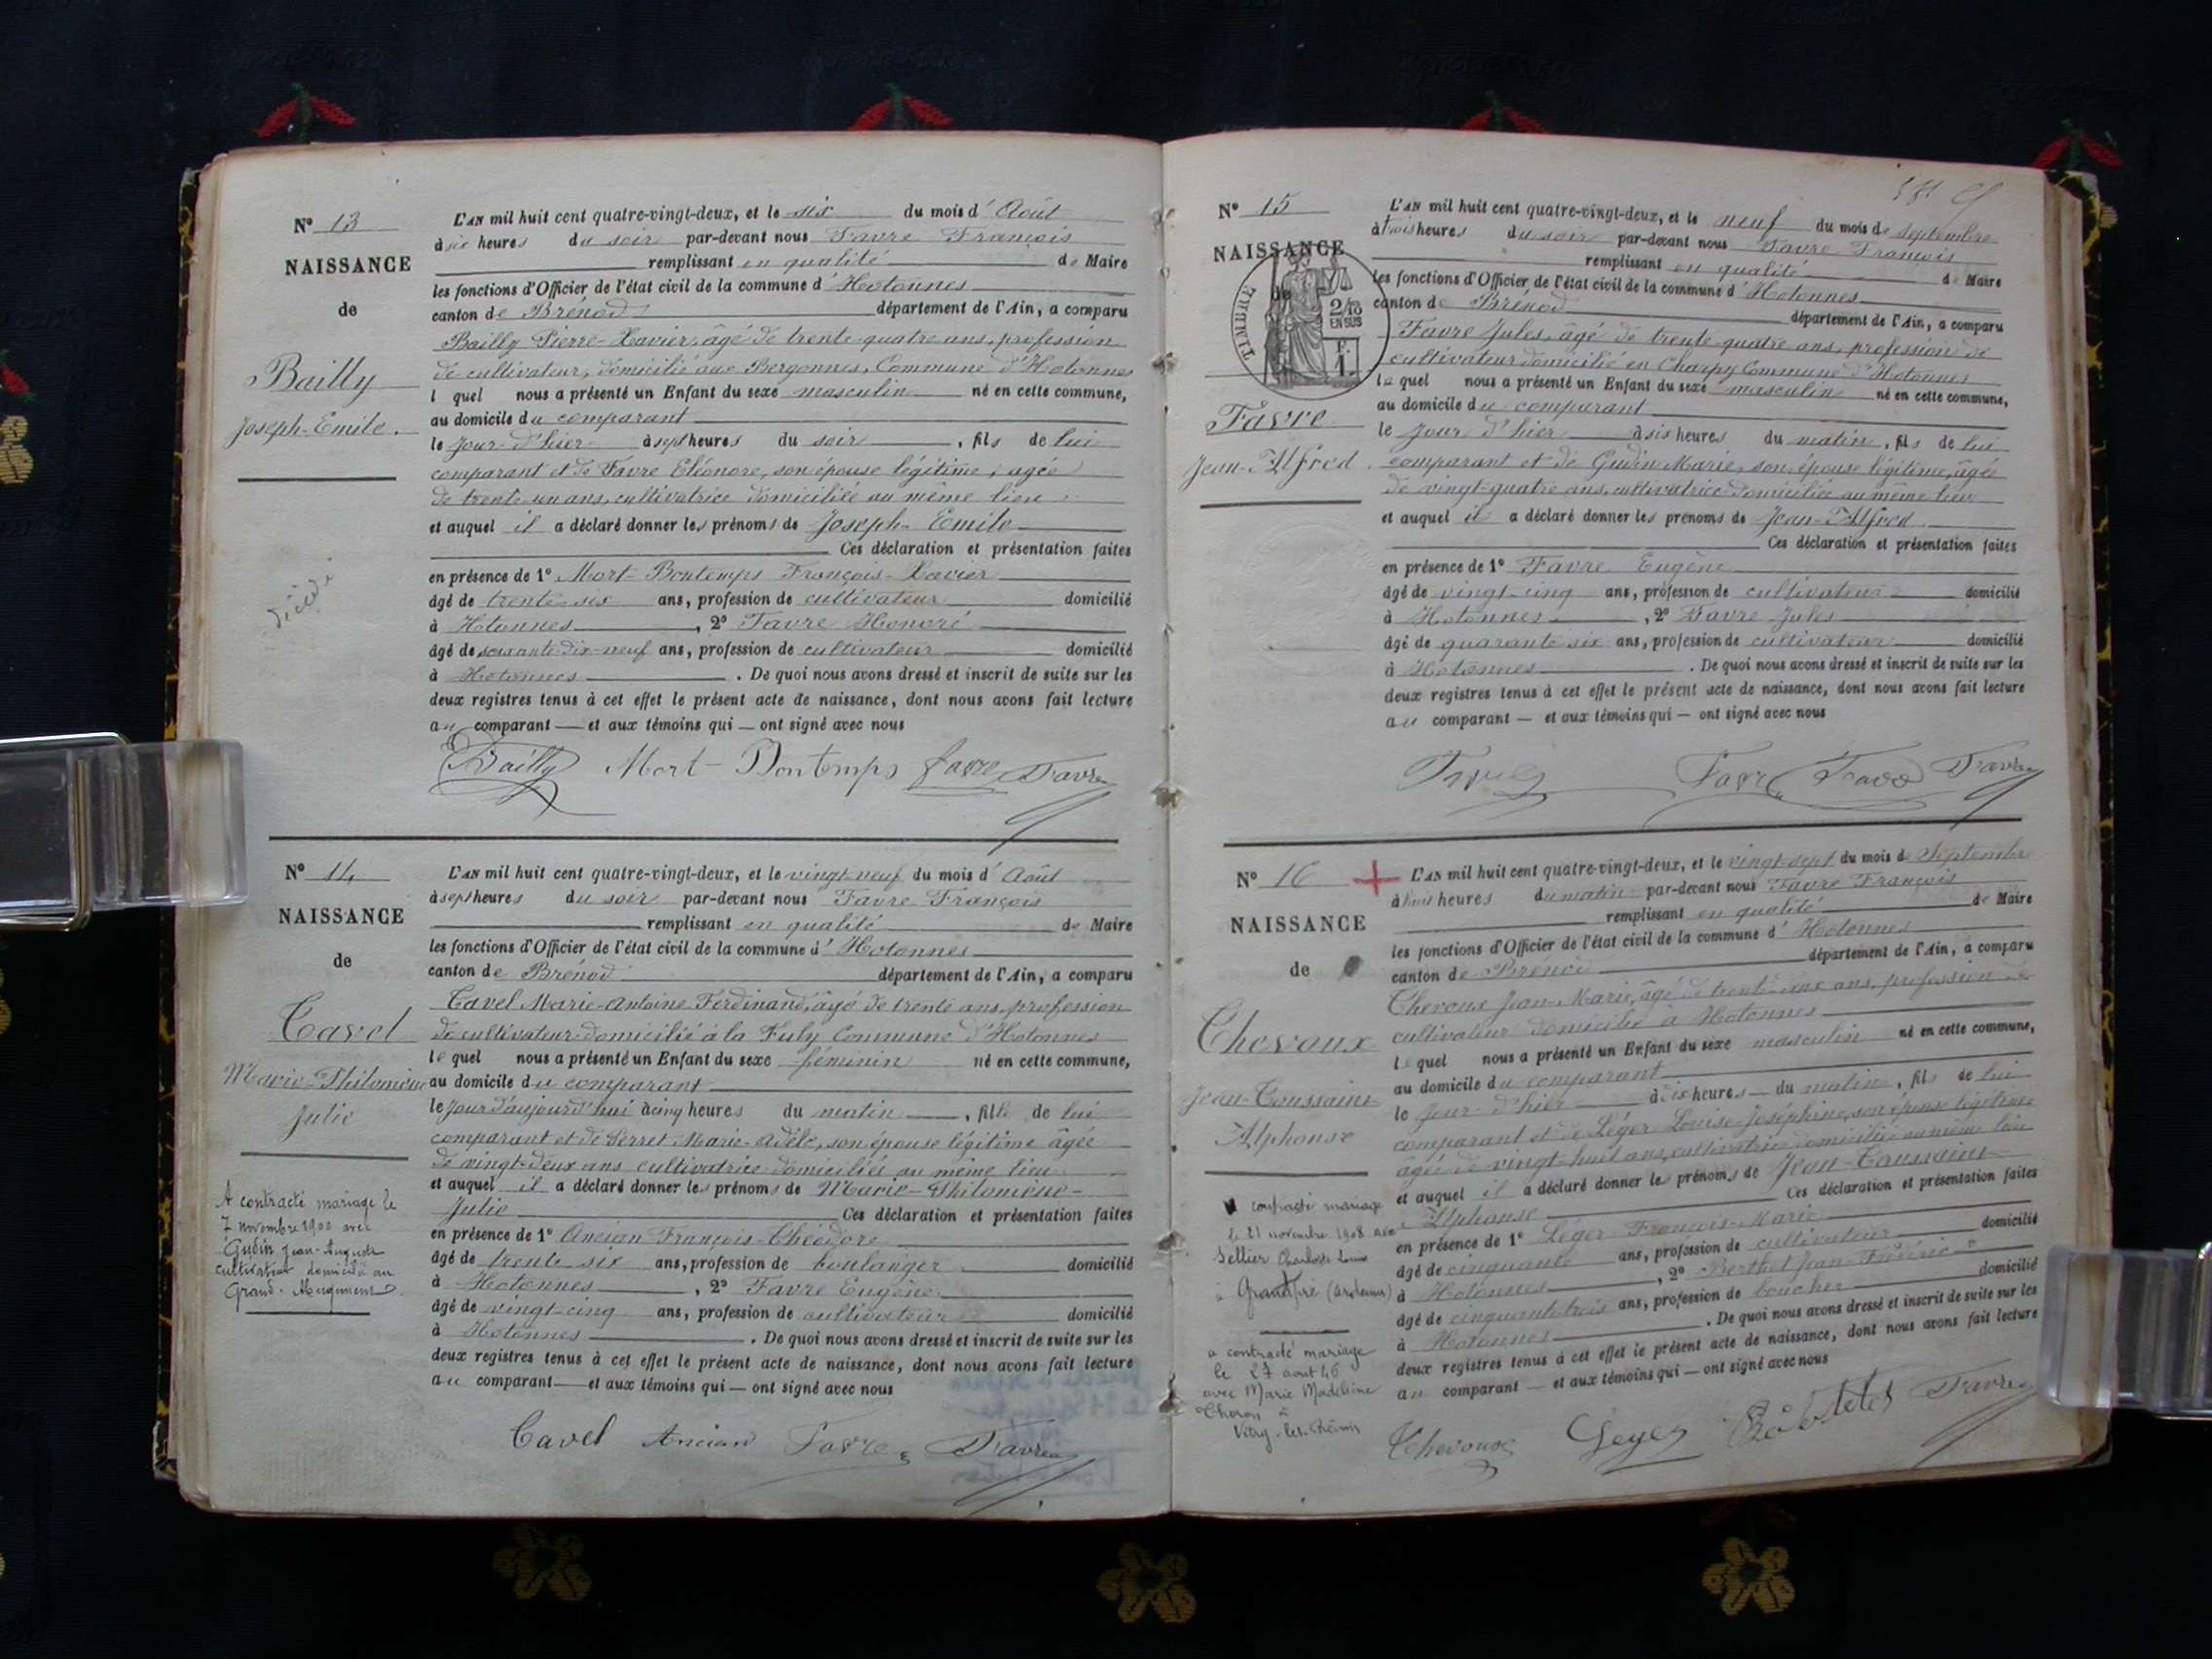 N° 13
NAISSANCE
de
Bailly
Joseph-Emile.
décédé
L'AN mil huit cent quatre-vingt-deux, et le six du mois d'Août
à six heures du soir par-devant nous Favre François
remplissant en qualité de Maire
les fonctions d'Officier de l'état civil de la commune d'Hotonnes
canton de Brénod département de l'Ain, a comparu
Bailly Pierre-Xavier, âgé de trente-quatre ans, profession
de cultivateur, domicilié aux Bergonnes, Commune d'Hotonnes
l quel nous a présenté un Enfant du sexe masculin né en cette commune,
au domicile du comparant
le jour d'hier à sept heures du soir, fils de lui
comparant et de Favre Eléonore, son épouse légitime, agée
de trente-un ans, cultivatrice domiciliée au même lieu
et auquel il a déclaré donner les prénoms de Joseph-Emile
Ces déclaration et présentation faites
en présence de 1° Mort-Bontemps François-Xavier
âgé de trente-six ans, profession de cultivateur domicilié
à Htonnes, 2° Favre Honoré
âgé de soixante-dix-neuf ans, profession de cultivateur domicilié
à Hotonnes. De quoi nous avons dressé et inscrit de suite sur les
deux registres tenus à cet effet le présent acte de naissance, dont nous avons fait lecture
au comparant — et aux témoins qui — ont signé avec nous
Bailly Mort-Bontemps Favre Favre
N° 14
NAISSANCE
de
Cavel
Marie-Philomène
Julie
A contracté mariage le
7 novembre 1900 avec
Gudin Jean-Auguste
cultivateur domicilié au
Grand-
L'AN mil huit cent quatre-vingt-deux, et le vingt-neuf du mois d'Août
à sept heures du soir par-devant nous Favre François
remplissant en qualité de Maire
les fonctions d'Officier de l'état civil de la commune d'Hotonnes
canton de Brénod département de l'Ain, a comparu
Cavel Marie-Antoine-Ferdinand, âgé de trente ans, profession
de cultivateur domicilié à la Fuly Commune d'Hotonnes
lequel nous a présenté un Enfant du sexe féminin né en cette commune,
au domicile du comparant
le jour d'aujourd'hui à cinq heures du matin, fille de lui
comparant et de Serret Marie-Adèle, son épouse légitime âgée
de vingt-deux ans cultivatrice domiciliée au même lieu
et auquel il a déclaré donner les prénoms de Marie-Philomène-
Julie Ces déclaration et présentation faites
en présence de 1° Ancian François-Théodore
âgé de trente six ans, profession de boulanger domicilié
à Hotonnes, 2° Favre Eugène
âgé de vingt-cinq ans, profession de cultivateur domicilié
à Hotonnes. De quoi nous avons dressé et inscrit de suite sur les
deux registres tenus à cet effet le présent acte de naissance, dont nous avons fait lecture
au comparant — et aux témoins qui — ont signé avec nous
Cavel Ancian Favre Favre
N° 15
NAISSANCE
de
TIMBRE
2/10
EN SUS
F.
1.
Favre
Jean-Alfred
L'AN mil huit cent quatre-vingt-deux, et le neuf du mois de septembre
à trois heures du soir par-devant nous Favre François
remplissant en qualité de Maire
les fonctions d'Officier de l'état civil de la commune d'Hotonnes
canton de Brénod département de l'Ain, a comparu
Favre Jules, âgé de trente-quatre ans, profession de
cultivateur domicilié en Charpy Commune d'Hotonnes
lequel nous a présenté un Enfant du sexe masculin né en cette commune,
au domicile du comparant
le jour d'hier à six heures du matin, fils de lui
comparant et de Gudin Marie, son épouse légitime, âgée
de vingt-quatre ans, cultivatrice domiciliée au même lieu
et auquel il a déclaré donner les prénoms de Jean-Alfred
Ces déclaration et présentation faites
en présence de 1° Favre Eugène
âgé de vingt-cinq ans, profession de cultivateur domicilié
à Hotonnes, 2° Favre Jules
âgé de quarante six ans, profession de cultivateur domicilié
à Hotonnes. De quoi nous avons dressé et inscrit de suite sur les
deux registres tenus à cet effet le présent acte de naissance, dont nous avons fait lecture
au comparant — et aux témoins qui — ont signé avec nous
Favre Favre Favre
N° 16
NAISSANCE
de
Chevoux
Jean-Toussaint
Alphonse
contracté mariage
le 21 novembre 1908 avec
Sellier Charlotte Louise
à (Ardennes)
a contracté mariage
le 27 août 46
avec Marie Madeleine
à
Vitry-les-Reims
L'AN mil huit cent quatre-vingt-deux, et le vingt-sept du mois de Septembre
à huit heures du matin par-devant nous Favre François
remplissant en qualité de Maire
les fonctions d'Officier de l'état civil de la commune d'Hotonnes
canton de Brénod département de l'Ain, a comparu
Chevoux Jean-Marie, âgé de trente-deux ans, profession de
cultivateur domicilié à Hotonnes
lequel nous a présenté un Enfant du sexe masculin né en cette commune,
au domicile du comparant
le jour d'hier à dix heures — du matin, fils de lui
comparant et de Léger Louise-Joséphine, son épouse légitime
âgée de vingt-huit ans, cultivatrice domiciliée au même lieu
et auquel il a déclaré donner les prénoms de Jean-Toussaint
Alphonse Ces déclaration et présentation faites
en présence de 1° Léger François-Marie
âgé de cinquante ans, profession de cultivateur domicilié
à Hotonnes, 2° Berthet Jean-Frédéric
âgé de cinquante-trois ans, profession de boucher domicilié
à Hotonnes. De quoi nous avons dressé et inscrit de suite sur les
deux registres tenus à cet effet le présent acte de naissance, dont nous avons fait lecture
au comparant — et aux témoins qui — ont signé avec nous
Chevoux Favre